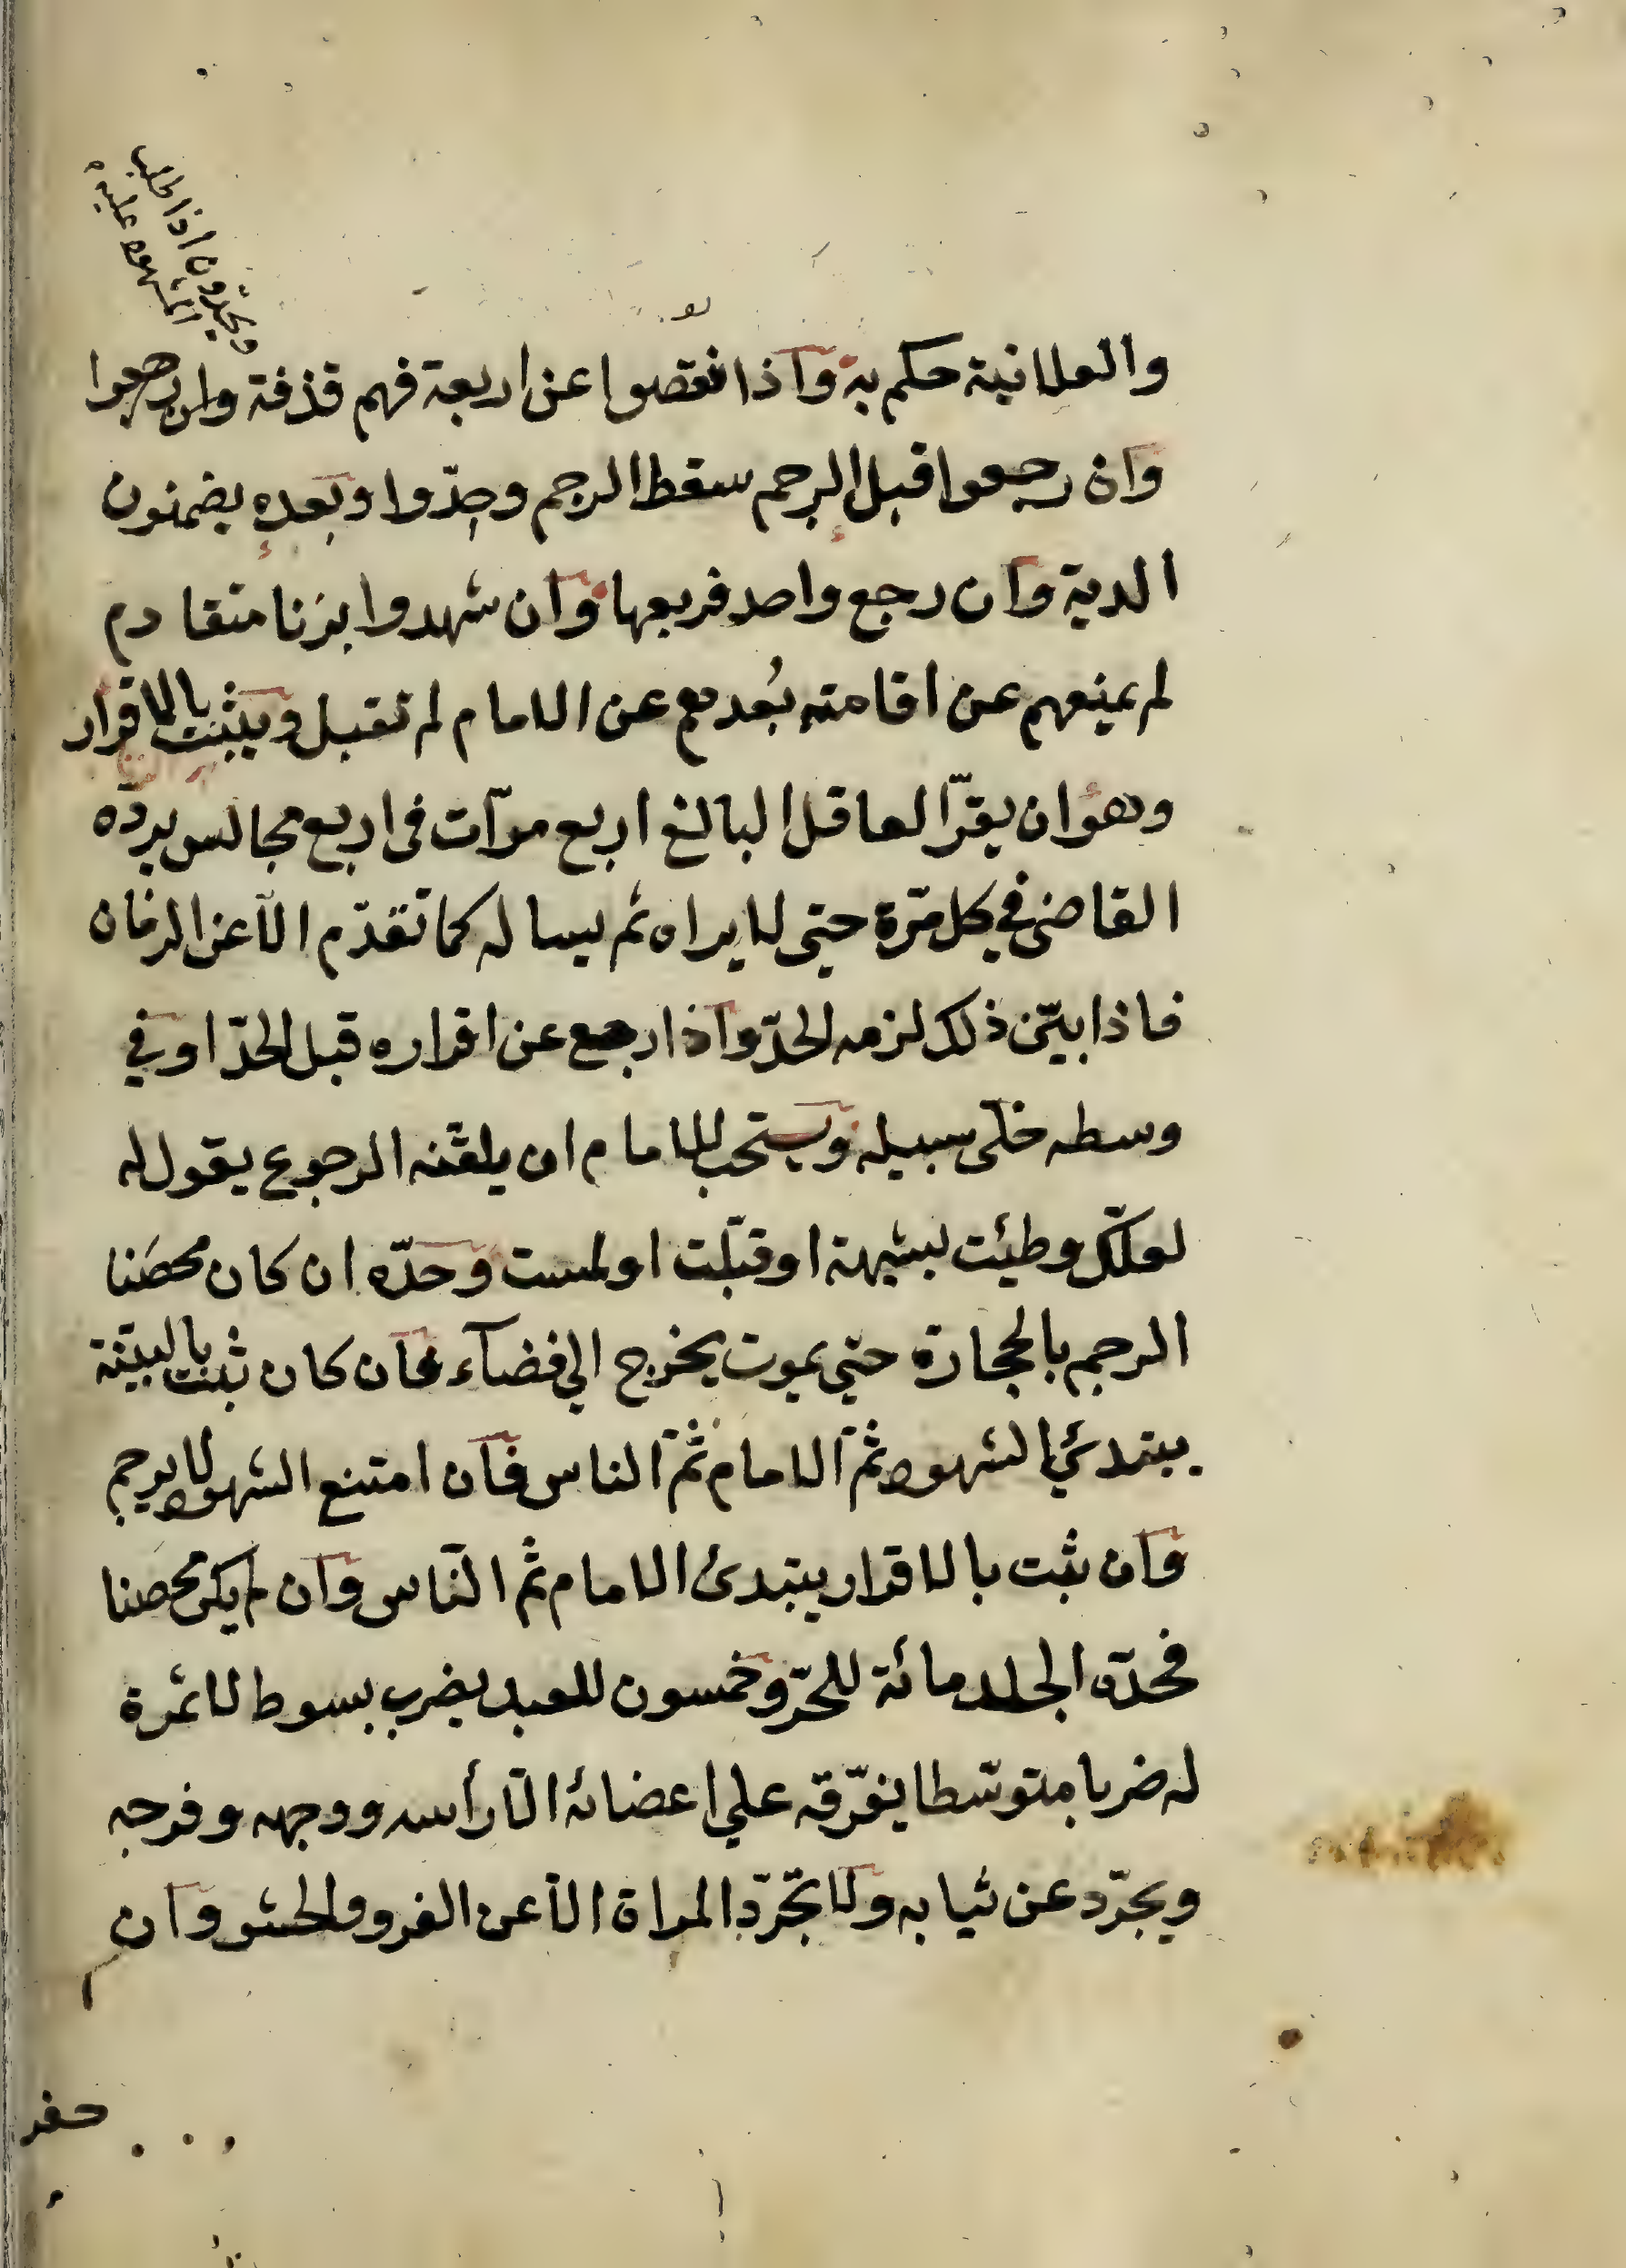 ويحدّون اذا طلب
المشهود عليه
والعلانية حكم به واذا نقصوا عن اربعة فهم قذفة وان رجعوا
وان رجعوا قبل الرجم سقط الرجم وحدّوا وبعده يضمنون
الدية وان رجع واحد فربعها وان شهدوا بزنا متقادم
لم يمنعهم عن اقامته بُعدهم عن الامام لم تقبل ويثبت بالاقرار
وهو ان يقرّ العاقل البالغ اربع مرّات في اربع مجالس يردّه
القاضي في كل مرّة حتى لا يراه ثم يساله كما تقدّم الّا عن الزمان
فاذا بيّن ذلك لزمه الحدّ واذا رجع عن اقراره قبل الحدّ او في
وسطه خلّى سبيله ويستحب للامام ان يلقّنه الرجوع يقول له
لعلّك وطئت بشبهة او قبّلت او لمست وحدّه ان كان محصَنا
الرجم بالحجارة حتي يموت يخرج الي فضآء فان كان ثبت بالبيّنة
يبتدئ الشهود ثمّ الامام ثمّ الناس فان امتنع الشهود لا يرجم
وان ثبت بالاقرار يبتدئ الامام ثم النّاس وان لم يكن محصنا
فحدّه الجلد مائة للحرّ وخمسون للعبد يضرب بسوط لا ثمرة
له ضربا متوسّطا يفرّقه علي اعضائه الّا رأسه ووجهه وفرجه
ويجرّد عن ثيابه ولا تجرّد المراة الّا عن الفرو والحشو وان
حفر